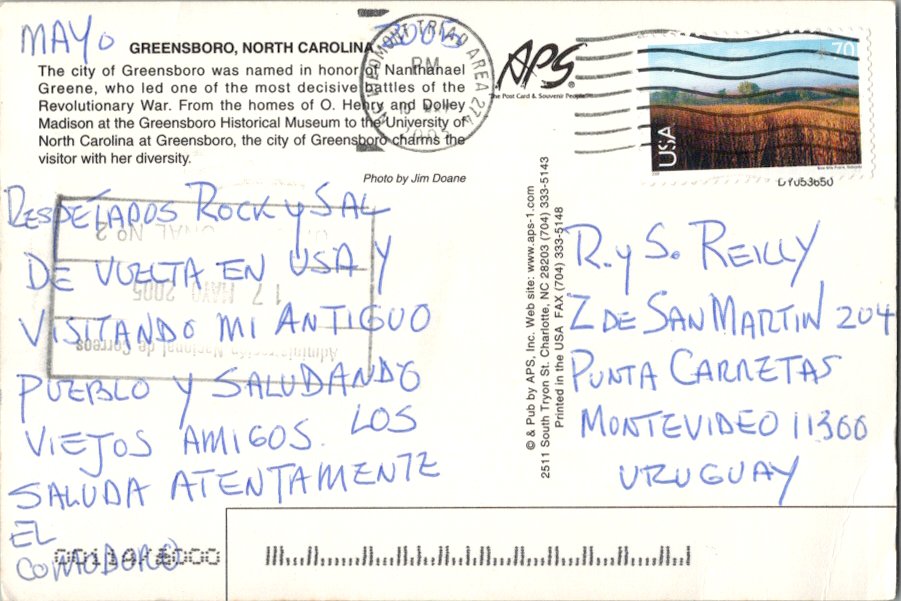 MAYO 2005
GREENSBORO, NORTH CAROLINA
The city of Greensboro was named in honor of Nanthanael
Greene, who led one of the most decisive battles of the
Revolutionary War. From the homes of O. Henry and Dolley
Madison at the Greensboro Historical Museum to the University of
North Carolina at Greensboro, the city of Greensboro charms the
visitor with her diversity.
Photo by Jim Doane
PIEDMONT TRIAD AREA 274
PM
2005
APS
The Post Card & Souvenir People
®
70
USA
DY053650
© & Pub by APS, Inc. Web site: www.aps-1.com
2511 South Tryon St. Charlotte, NC 28203 (704) 333-5143
Printed in the USA FAX (704) 333-5148
ROCK Y SAL
DE VUELTA EN USA Y
VISITANDO MI ANTIGUO
PUEBLO Y SALUDANDO
VIEJOS AMIGOS. LOS
SALUDA ATENTAMENTE
EL
COMODORO
Nº 2
17 MAYO 2005
Administración Nacional de Correos
R. y S. REILLY
Z DE SAN MARTIN 204
PUNTA CARRETAS
MONTEVIDEO 11300
URUGUAY